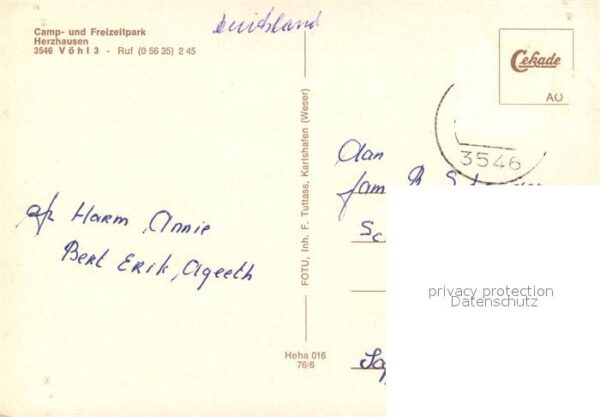 Camp- und Freizeitpark
Herzhausen
3546 Vöhl 3 - Ruf (0 56 35) 2 45
Duitsland
Cekade
AO
3546
FOTU, Inh. F. Tuttass, Karlshafen (Weser)
Aan
fam B.
Sc
afz Harm, Annie
Bert Erik, Ageeth
privacy protection
Datenschutz
Heha 016
76/6